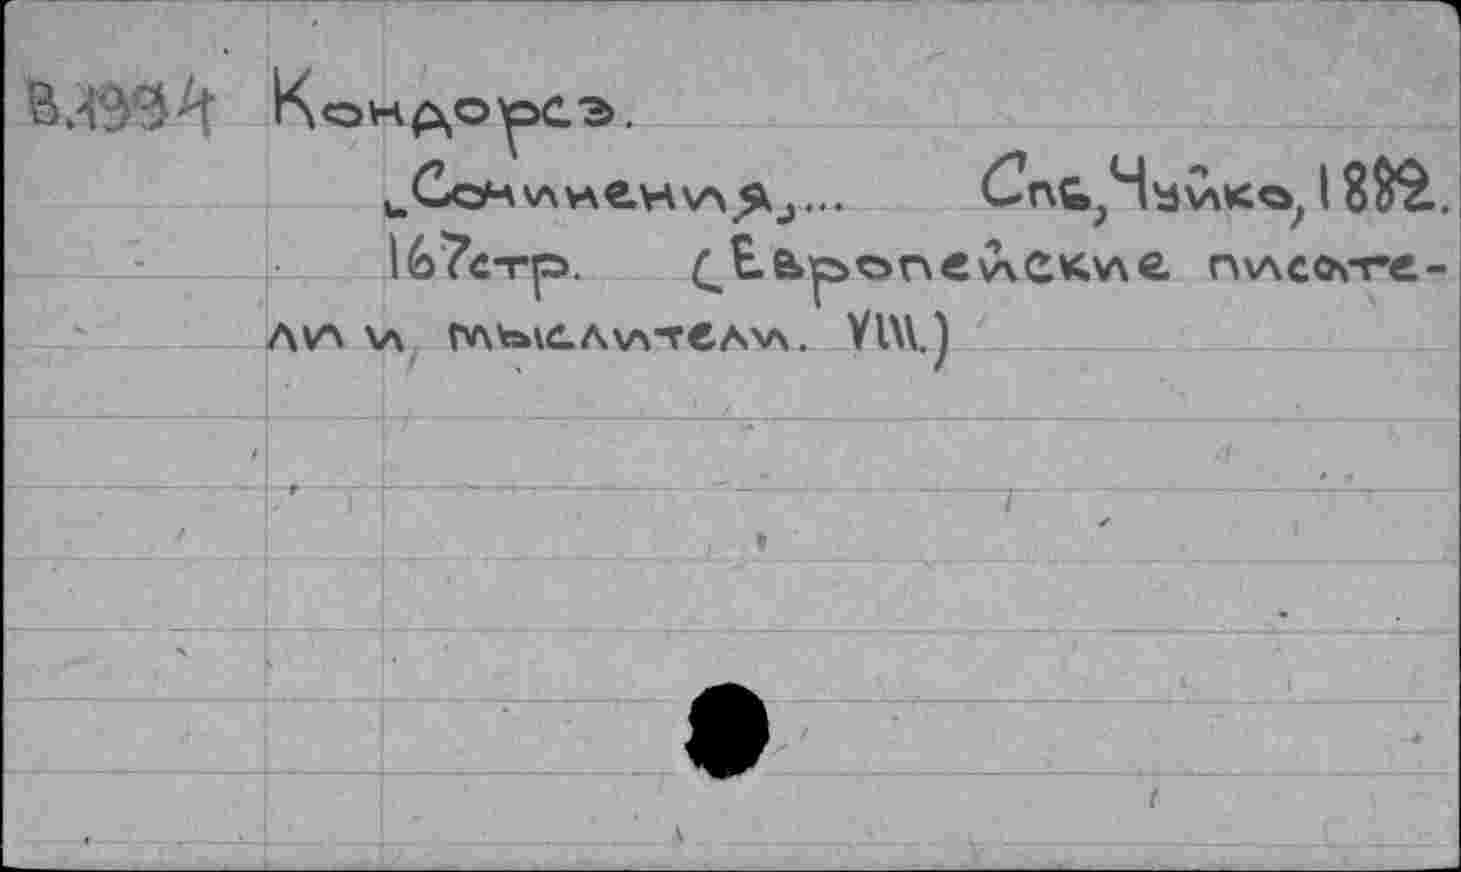 В.1994 Кондорсэ.
[Сочинения]... Спб, Чуйко, 1882.
167стр. (Европейские писате-
ли и мыслители. VIII.)